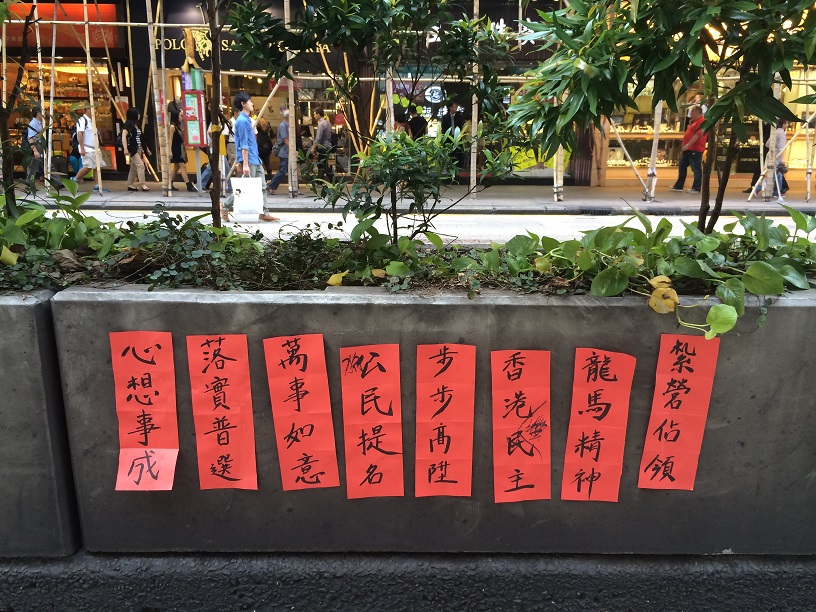 POLO
紮營佔領
龍馬精神
香港民主
步步高陞
公民提名
萬事如意
落實普選
心想事成